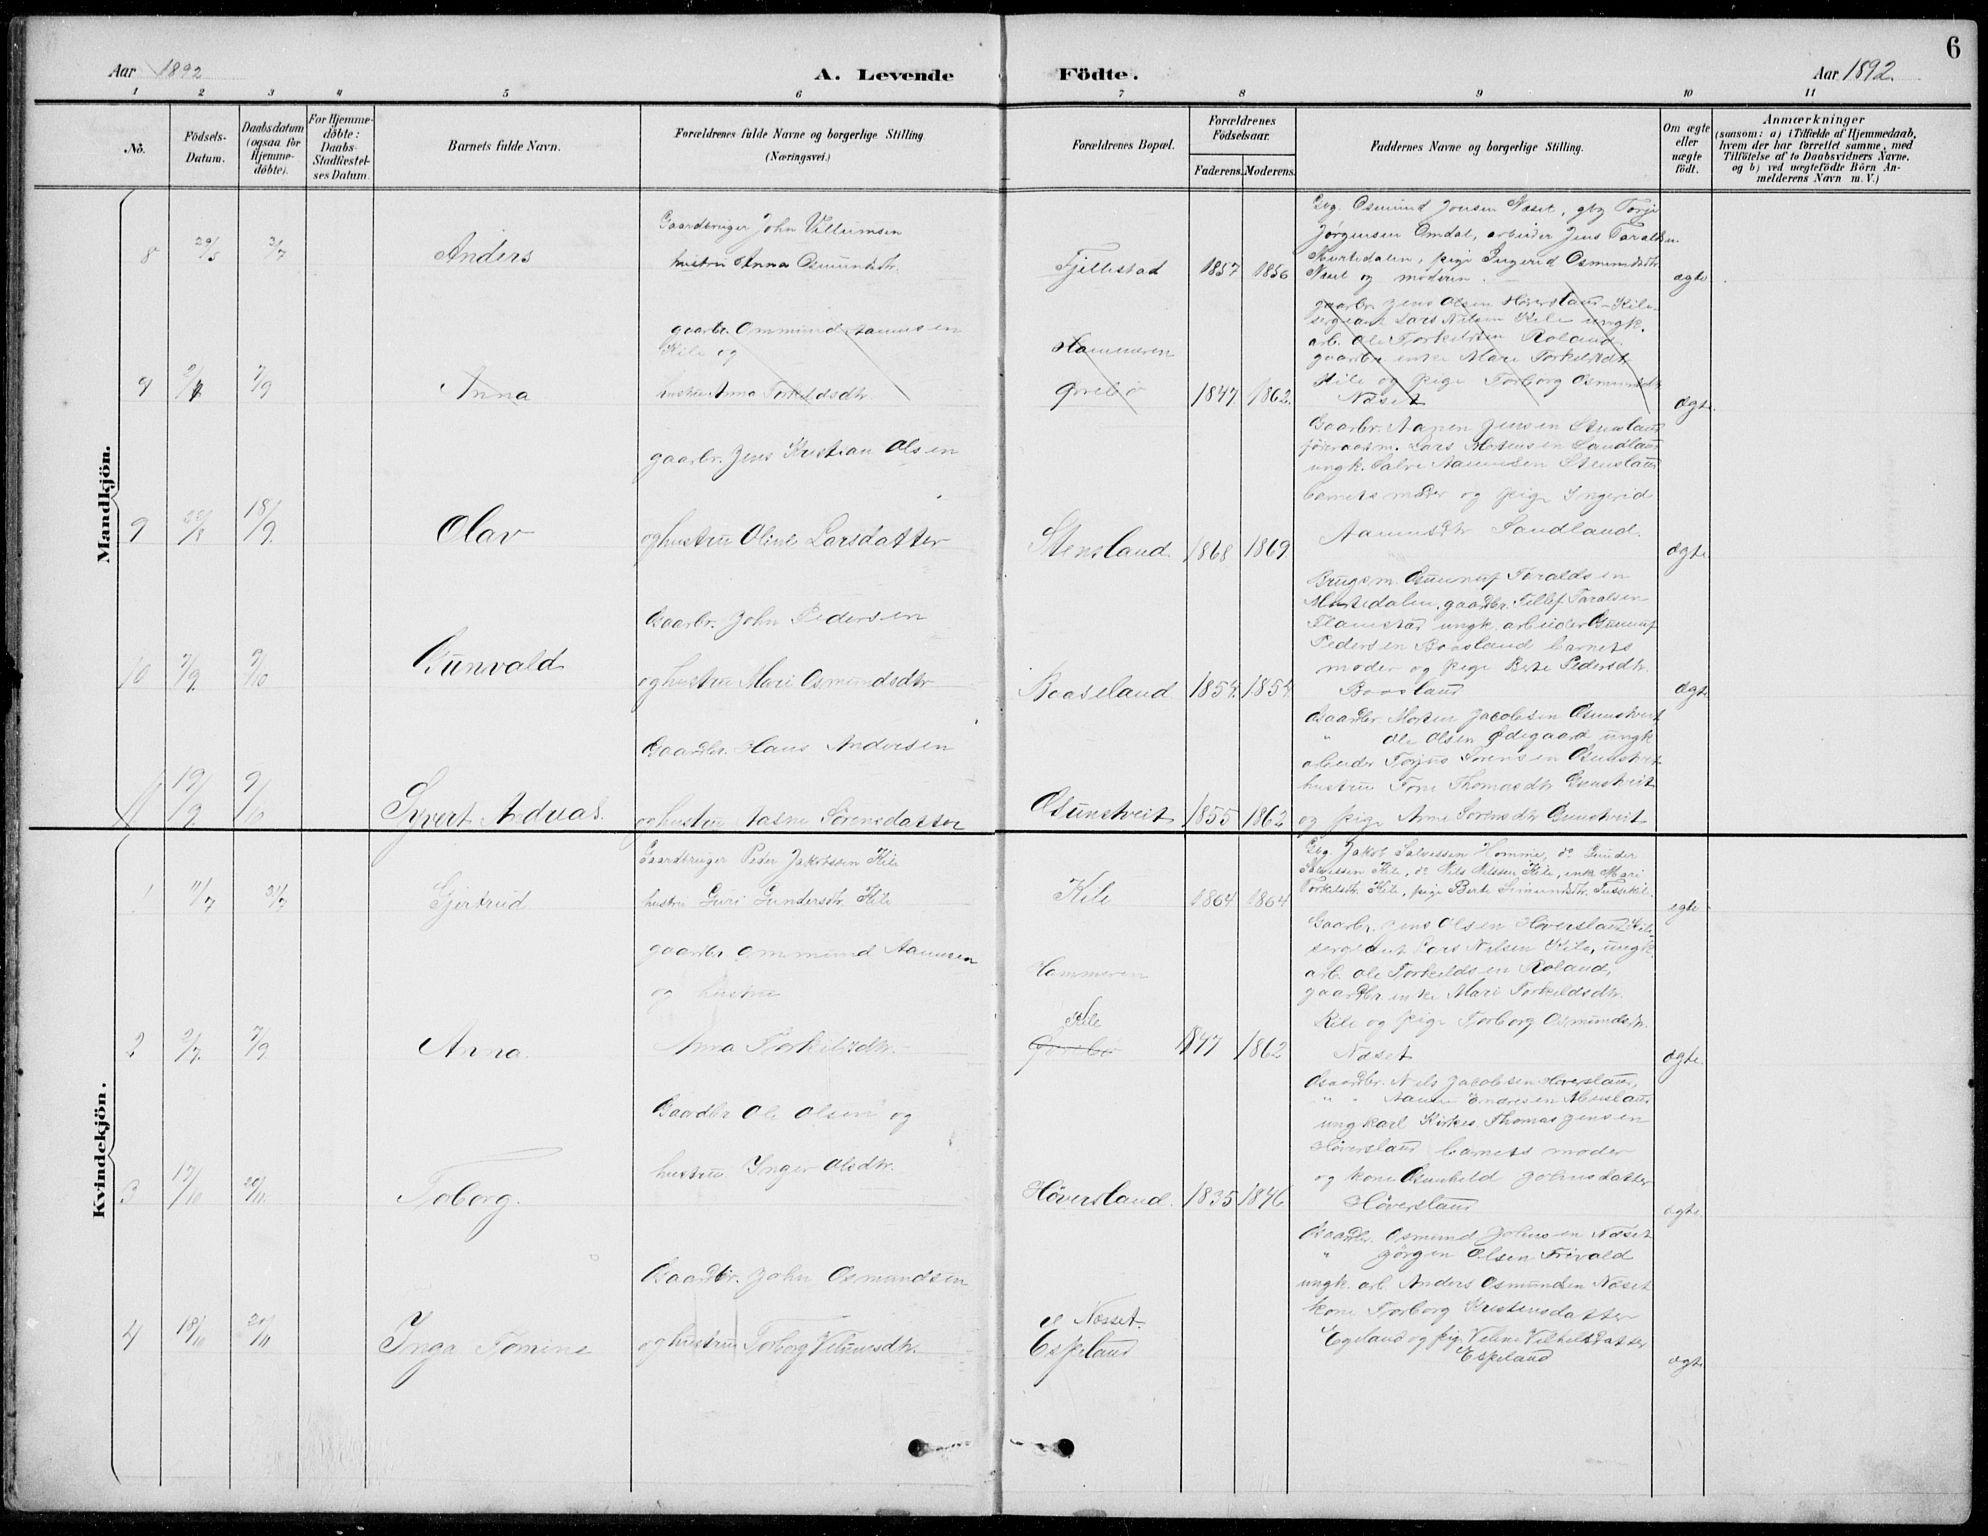 6
Aar 1892
A. Levende
Födte.
Aar 1892.
1 2 3 4 5 6 7 8 9 10 11
No.
Födsels-
Datum.
Daabsdatum
(ogsaa for
Hjemme-
döbte).
For Hjemme-
döbte:
Daabs-
Stadfæstel-
ses Datum.
Barnets fulde Navn.
Forældrenes fulde Navne og borgerlige Stilling
(Næringsvei.)
Forældrenes Bopæl.
Forældrenes
Födselsaar.
Faderens. Moderens.
Faddernes Navne og borgerlige Stilling.
Om ægte
eller
uægte
födt.
Anmærkninger
(saasom: a) i Tilfælde af Hjemmedaab,
hvem der har forrettet samme, med
Tilföielse af to Daabsvidners Navne,
og b) ved uægtefödte Börn An-
melderens Navn m. V.)
Mandkjön.
8 29/5 3/7
Anders
Gaardbruger John Villumsen
hustru Anna Osmundsdtr.
Fjellestad
1857 1856
Gbg. Osmund Jonsen Næset, gbg Torje
Jørgensen Omdal, arbeider Jens Taraldsen
Murtedalen, pige Ingerid Osmundsdtr
Næset og moderen.
ægte
9 7/9
Anna
gaarbr. Ommund Aanensen
Kile og
hustru Anna Torkildsdtr.
Hammeren
Ørebø
1847 1862.
gaarbr. Jens Olsen Høversland - Kile
sergeant Lars Nilsen Kile ungk.
arb. Ole Torkildsen Roland
gaarbr enke Mari Torkildsdtr
Kile og pige Torborg Osmundsdtr
Næset
Ægte.
9 18/9.
Olav
gaarbr. Jens Kristian Olsen
og hustru Oline Larsdatter
Stensland
1868 1869
Gaarbr. Aanen Jensen Stensland
Lars Sandland
ungk. Salve Aanensen Stensland
barnets moder og pige Ingerid
Aanensdtr Sandland.
Ægte
10 7/9. 9/10
Gunvald
Gaarbr. John Pedersen
og hustru Mari Osmundsdtr
Baaseland
1854. 1854.
Brugsm. Gunnuf Taraldsen
gaardbr. Tellef Taralsen
Flamstad ungk. arbeider Gunnuf
Pedersen Baasland barnets
moder og pige Berte Pedersdtr.
Baasland
Ægte
11 19/9 9/10
Syvert Andreas.
Gaardbr. Hans Andersen
og hustru Aasne Sørensdatter
Gunstveit
1855 1862
Gaardbr. Jacobsen Gunstveit
" Ole Olsen Ødegaard ungk
arbeider Torjus Sørensen Gunstveit
hustru Tone Thomasdtr Gunstveit
og pige Anne Sørensdtr Gunstveit
Kvindekjön.
1 11/7 31/7
Gjertrud
Gaardbruger Peder Jakobssen Kile
hustru Guri Gundersdtr. Kile
Kile
1864 1864
Gbg. Jakob Salvessen Homme, do Gunder
Salvessen Kile, do Nils Nilssen Kile, enke Mari
Torkilsdtr Kile, pige Berte Simundsdtr.
egte
2 2/7. 7/9
Anna.
gaardbr Ommund Aanensen
og hustru
Anna Torkilsdtr.
Hammeren
Kile
Ørebø
1847 1862
Gaarbr. Jens Olsen Høversland Kile
sergeant Lars Nilsen Kile, ungk.
arb. Ole Torkildsen Roland,
gaardbr enke Mari Torkildsdtr.
Kile og pige Torborg Osmundsdtr.
Næset
Ægte.
3 17/10 20/11.
Toborg.
Gaardbr Ole Olsen og
hustru Inger Olsdtr.
Høversland.
1835 1846
Gaardbr. Nils Jacobsen Høversland,
" " Aanen Endresen
ungkarl Kirkes. Thomas Jensen
Høversland barnets moder
og kone Gunhild Johnsdatter
Høversland
ægte.
4 18/10 20/11
Inga Tomine
Gaardbr. John Osmundsen
og hustru Torborg Villumsdtr.
Næset.
Espeland
Gaardbr. Osmund Johnsen Næset
" Jørgen Olsen Frivald
ungk. arb. Anders Osmundsen Næset
kone Torborg Kristensdatter
Egeland og pige Vilhelmsdatter
Espeland
ægte